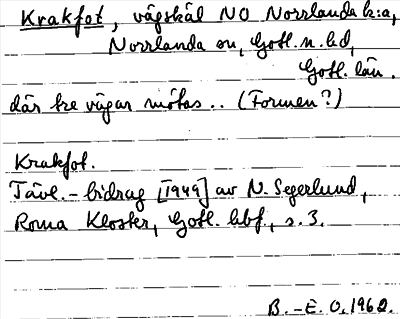 Krakfot, vägskäl NO Norrlanda k:a,
Norrlanda sn, Gotl. n. hd,
Gotl. län.
där tre vägar mötas.. (Formen?)
Krakfot.
Tävl.-bidrag [1949] av N. Segerlund,
Roma Kloster, Gotl. hbf., s. 3.
B.-E. O. 1962.